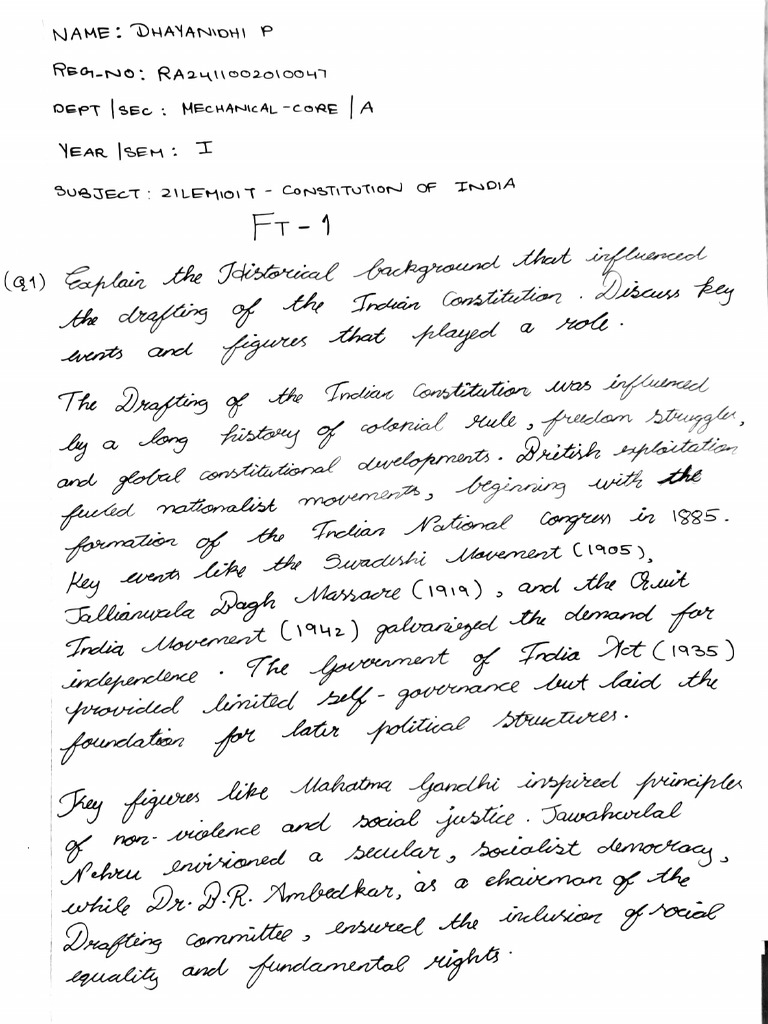 NAME: DHAYANIDHI P
REG-NO: RA2411002010047
DEPT/SEC: MECHANICAL-CORE/A
YEAR/SEM: I
SUBJECT: 21LEM101T - CONSTITUTION OF INDIA
FT-1
(Q1) Explain the Historical background that influenced
the drafting of the Indian Constitution. Discuss key
events and figures that played a role.
The Drafting of the Indian Constitution was influenced
by a long history of colonial rule, freedom struggles,
and global constitutional developments. British exploitation
fueled nationalist movements, beginning with the
formation of the Indian National Congress in 1885.
Key events like the Swadeshi Movement (1905),
Jallianwala Bagh Massacre (1919), and the Quit
India Movement (1942) galvanized the demand for
independence. The Government of India Act (1935)
provided limited self-governance but laid the
foundation for later political structures.
Key figures like Mahatma Gandhi inspired principles
of non-violence and social justice. Jawaharlal
Nehru envisioned a secular, socialist democracy,
while Dr. B.R. Ambedkar, as a chairman of the
Drafting committee, ensured the inclusion of social
equality and fundamental rights.